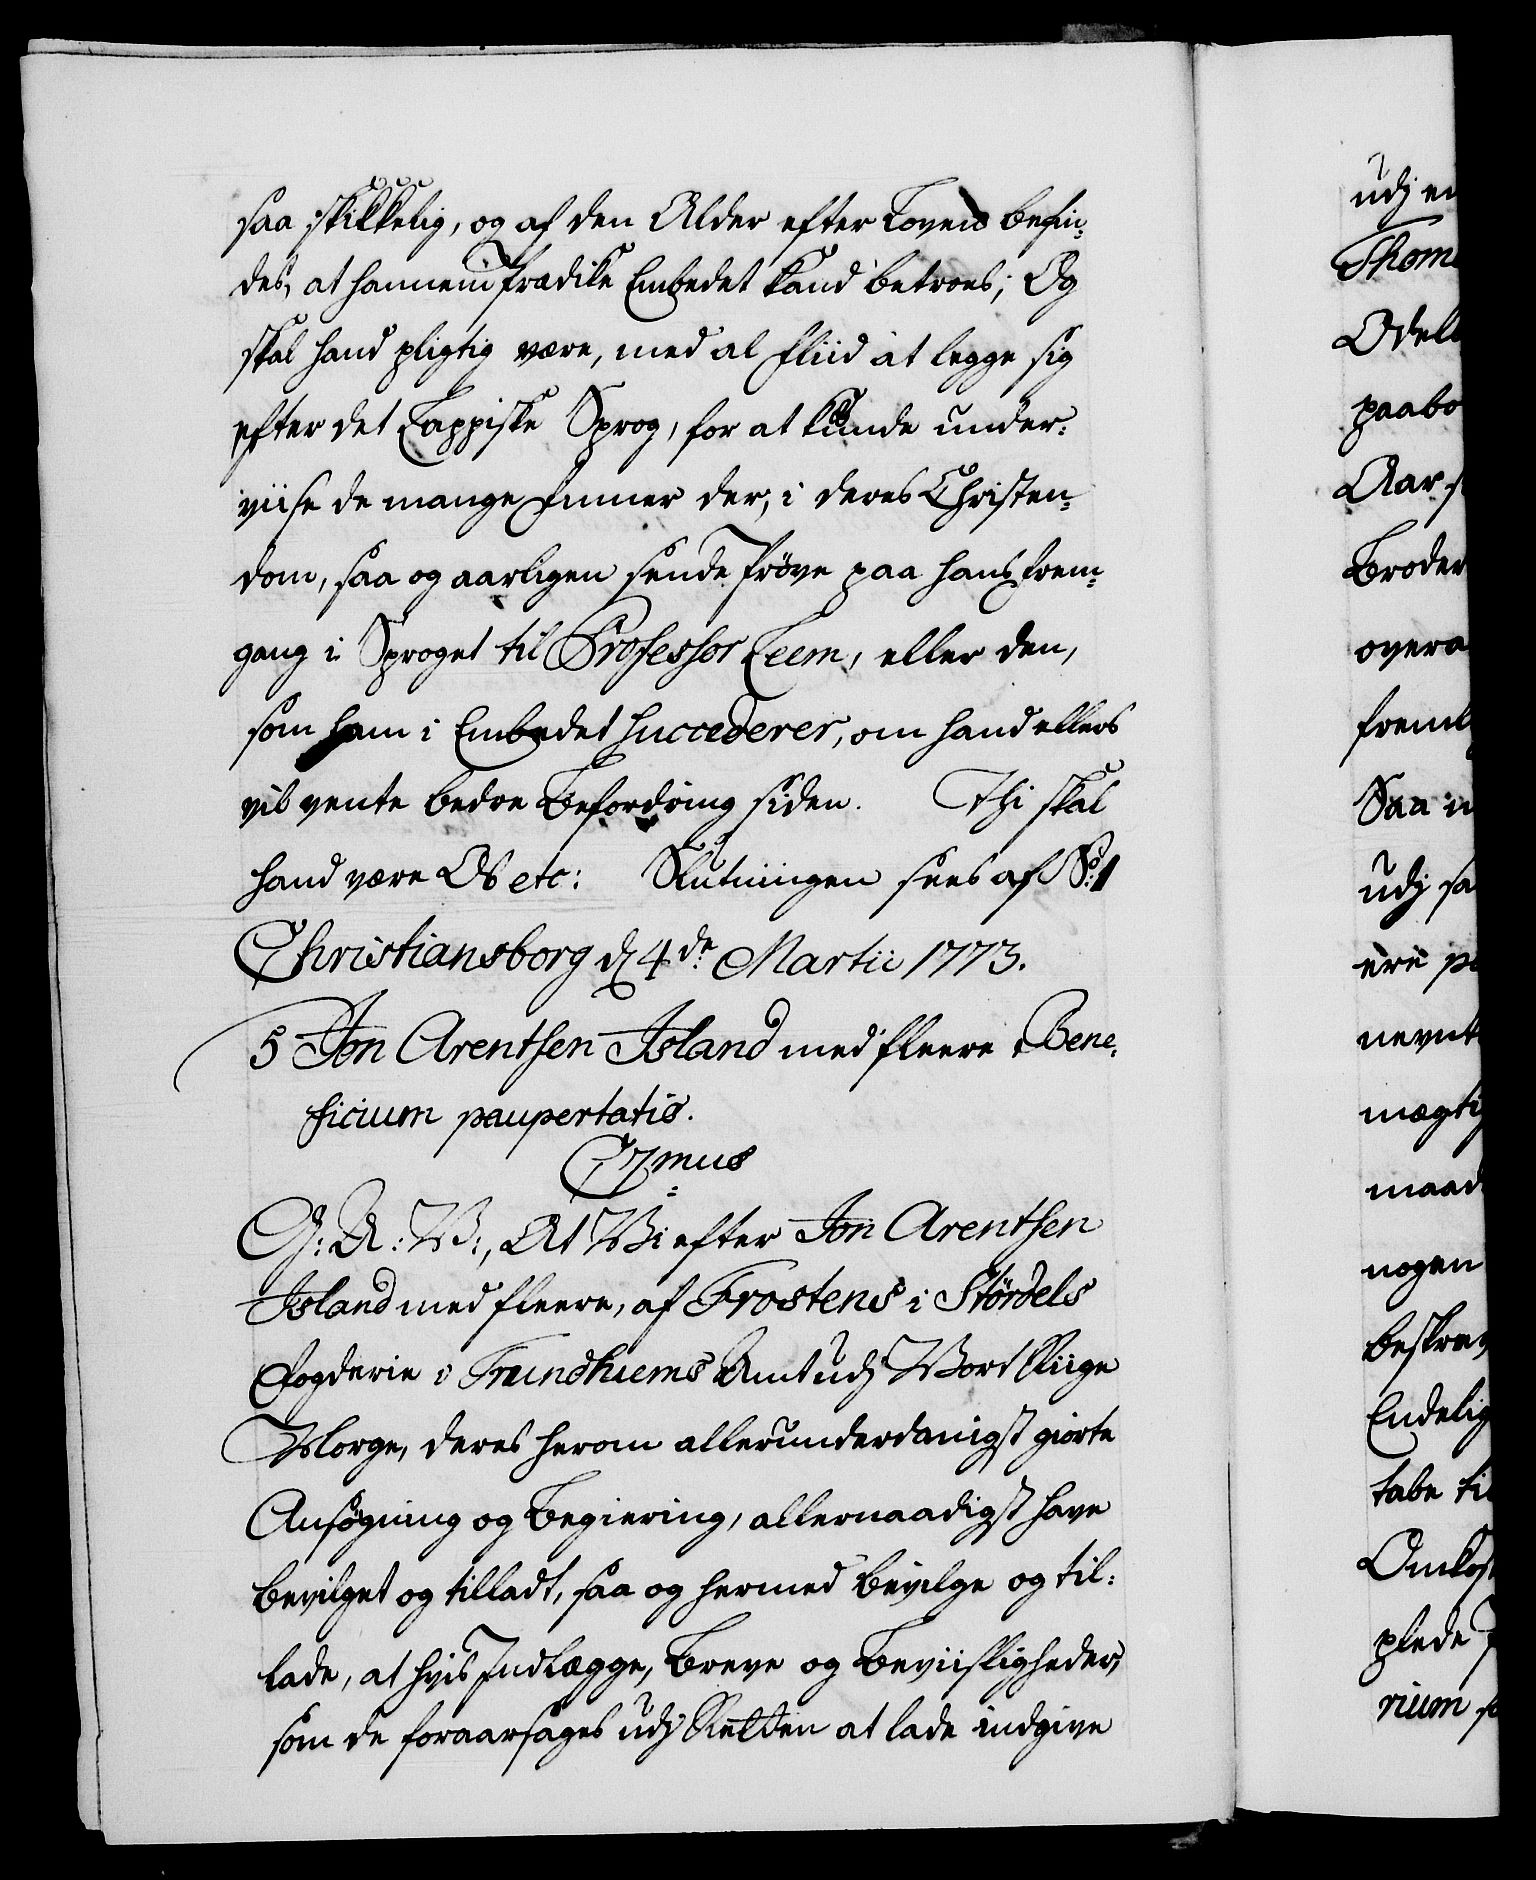 saa skikkelig, og af den Alder efter Loven befin-
des, at hannem Prædike Embedet kand betroes; Og
skal hand pligtig være, med al Fliid at legge sig
efter det Lappiske Sprog, for at kunde under-
viise de mange Finner der, i deres Christen-
dom, saa og aarligen sende Prøve paa hans Frem-
gang i Sproget til Professor Leem, eller den,
som ham i Embedet succederer, om hand ellers
vil vente bedre Befordring siden. Thi skal
hand være Os etc: Slutningen sees af No: 1
Christiansborg d 4de Martii 1773.
5 Jon Arentsen Island med fleere Bene-
ficium paupertatis.
C 7mus
G: A: V:, At Vi efter Jon Arentsen
Island med fleere, af Frostens i Størdels
Fogderie i Trundhiems Amt udj Vort Riige
Norge, deres herom allerunderdanigst giorte
Ansøgning og Begiering, allernaadigst have
bevilget og tilladt, saa og hermed bevilge og til-
lade, at hvis Indlægge, Breve og Beviisligheder,
som de foraarsages udj Retten at lade indgive
udj
Aar
Broder
overa
Saa
udj sa
ere
nevnt
mægtig
maad
nogen
beskrev
Endelig
tabe til
Omkost
plede
rium